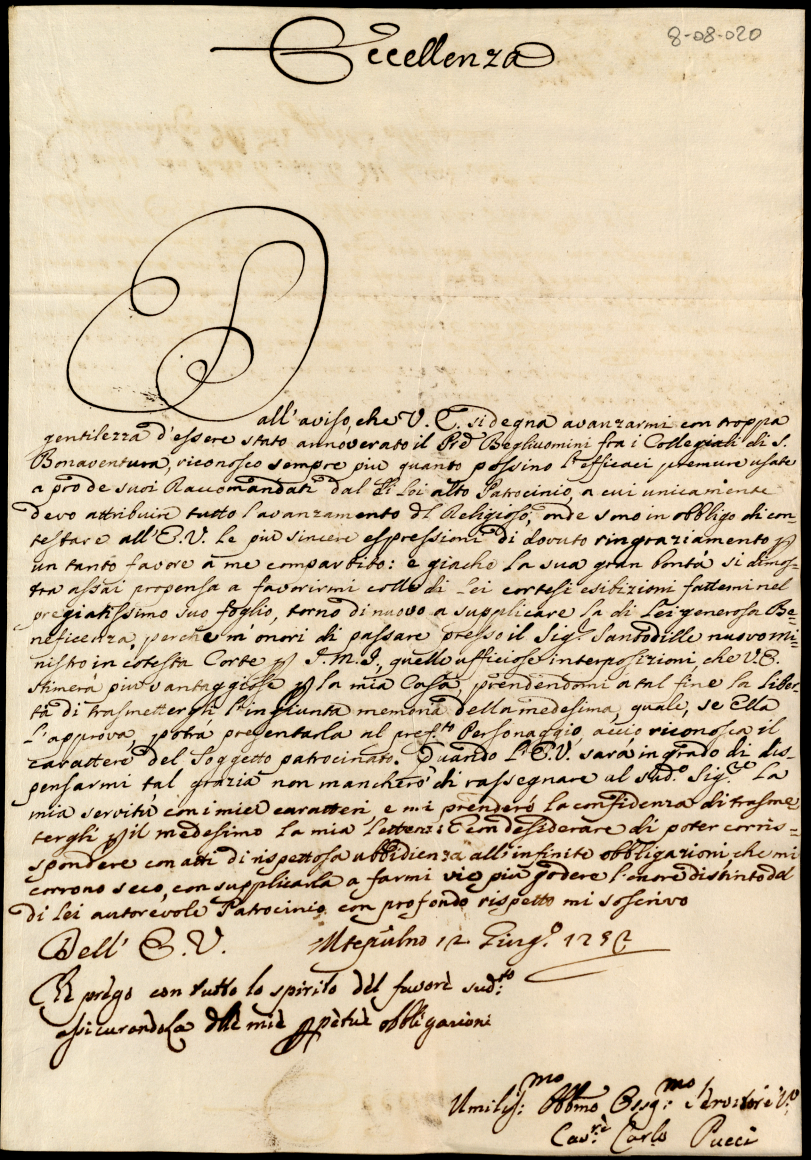 8-08-020
Eccellenza
Dall' aviso, che V. E. si degna avanzarmi con troppa
gentilezza d'essere stato annoverato il Prè Begliuomini fra i Collegiali di S.
Bonaventura, riconosco sempre piu quanto possino l'efficaci premure usate
a pro de suoi Raccomandati dal di Lei alto Patrocinio, a cui unicamente
devo attribuire tutto l'avanzamento del Religioso, onde sono in obbligo di con=
testare all'E.V. le piu sincere espressioni di dovuto ringraziamento p
un tanto favore à me compartito: e giache la sua gran bontà si dimos=
tra assai propensa a favorirmi colle di Lei cortesi esibizioni fattemi nel
pregiatissimo suo foglio, torno di nuovo a supplicare la di Lei generosa Be=
neficenza, perche m'onori di passare presso il Sig.r nuovo Mi=
nistro in cotesta Corte p S.M.I., quelle ufficiose interposizioni, che V.E.
stimerà piu vantaggiose p la mia Casa, prendendomi a tal fine la liber=
tà di trasmettergli l'ingiunta memoria della medesima, quale, se Ella
l'approva, potrà presentarla al pref.to Personaggio, acciò riconosca il
carattere del Soggetto patrocinato. Quando l'E.V. sarà in grado di dis=
pensarmi tal grazia non mancherò di rassegnare al sud.o Sig.re La
mia servitù con i miei caratteri, e mi prenderò la confidenza di trasme=
tergli p il medesimo la mia lettera: E con desiderare di poter corris=
spondere con atti di rispettosa ubbidienza all'infinite obbligazioni, che mi
corrono seco, con supplicarla a farmi vie più godere l'onore distinto del
di Lei autorevole Patrocinio, con profondo rispetto mi soscrivo
Dell' E.V. Mtepulno 12 Giug.o
La prego con tutto lo spirito del favore sud.to
assicurandola delle mie ppetue obbligazioni
Umiliss:mo Obbmo Ossq:mo Servitore V.o
Cav.re Carlo Pucci